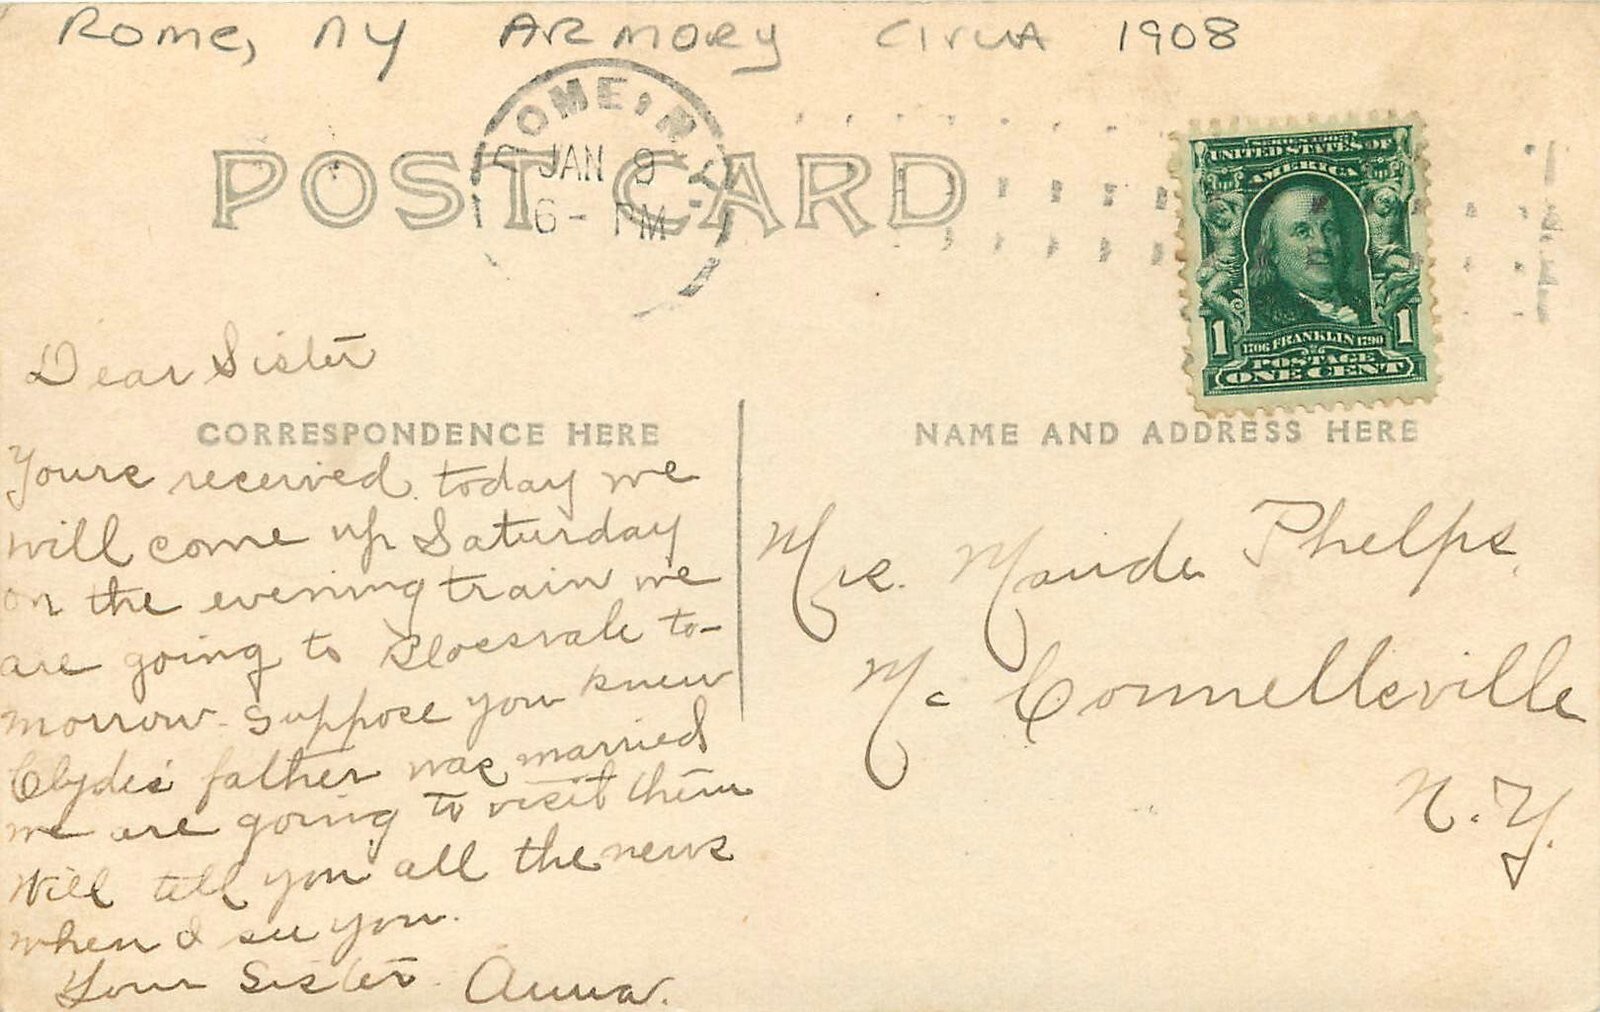 Rome, NY ARMORY CIRCA 1908
POST CARD
ROME, N.Y.
JAN 9
6- PM
SERIES 1902
UNITED STATES OF
AMERICA
1 1
1706 FRANKLIN 1790
POSTAGE
ONE CENT
Dear Sister
CORRESPONDENCE HERE
Yours received today we
will come up Saturday
on the evening train we
are going to Blossvale to-
morrow. Suppose you knew
Clydes' father was married
we are going to visit them
Will tell you all the news
when I see you.
Your Sister Anna.
NAME AND ADDRESS HERE
Mrs. Maude Phelps,
Mc Connellsville
N.Y.